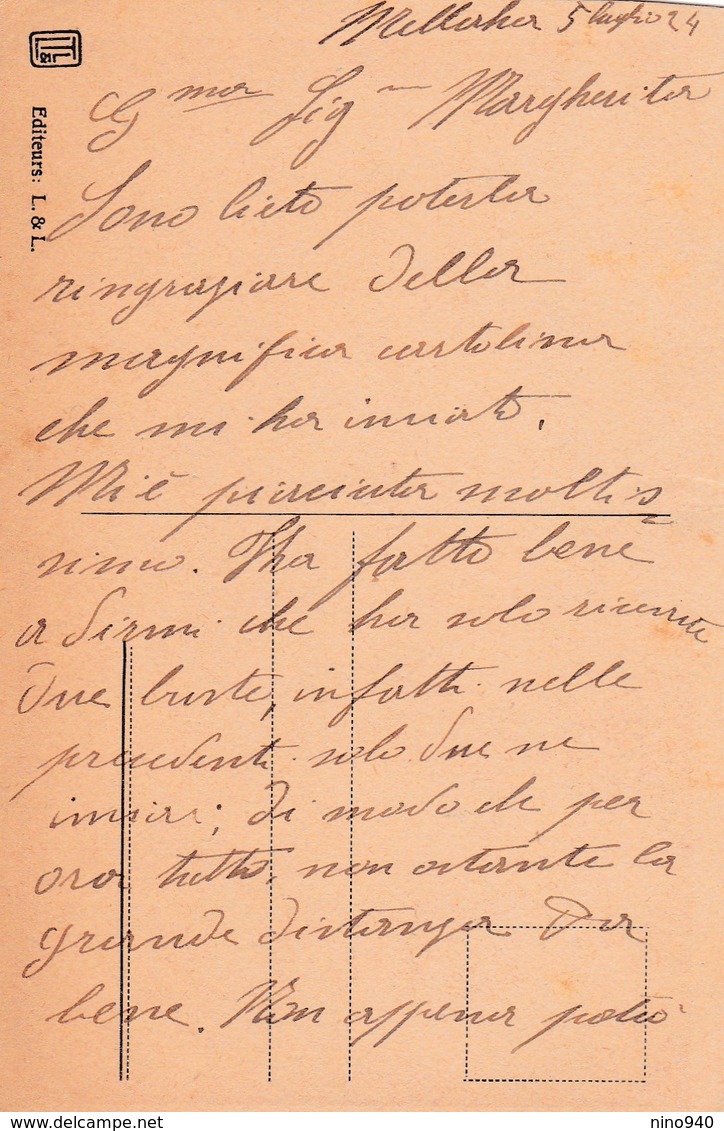 Mellaha 5 luglio 24
G.ma Sig.na Margherita
Sono lieto poterla
ringraziare della
magnifica cartolina
che mi ha inviato.
Mi è piaciuta moltis
simo. Ha fatto bene
a dirmi che ha solo ricevute
due buste, infatti nelle
precedenti solo due ne
inviai; di modo che per
ora tutto, non ostante la
grande distanza va
bene. Non appena potrò
Editeurs: L. & L.
L&L
nino940